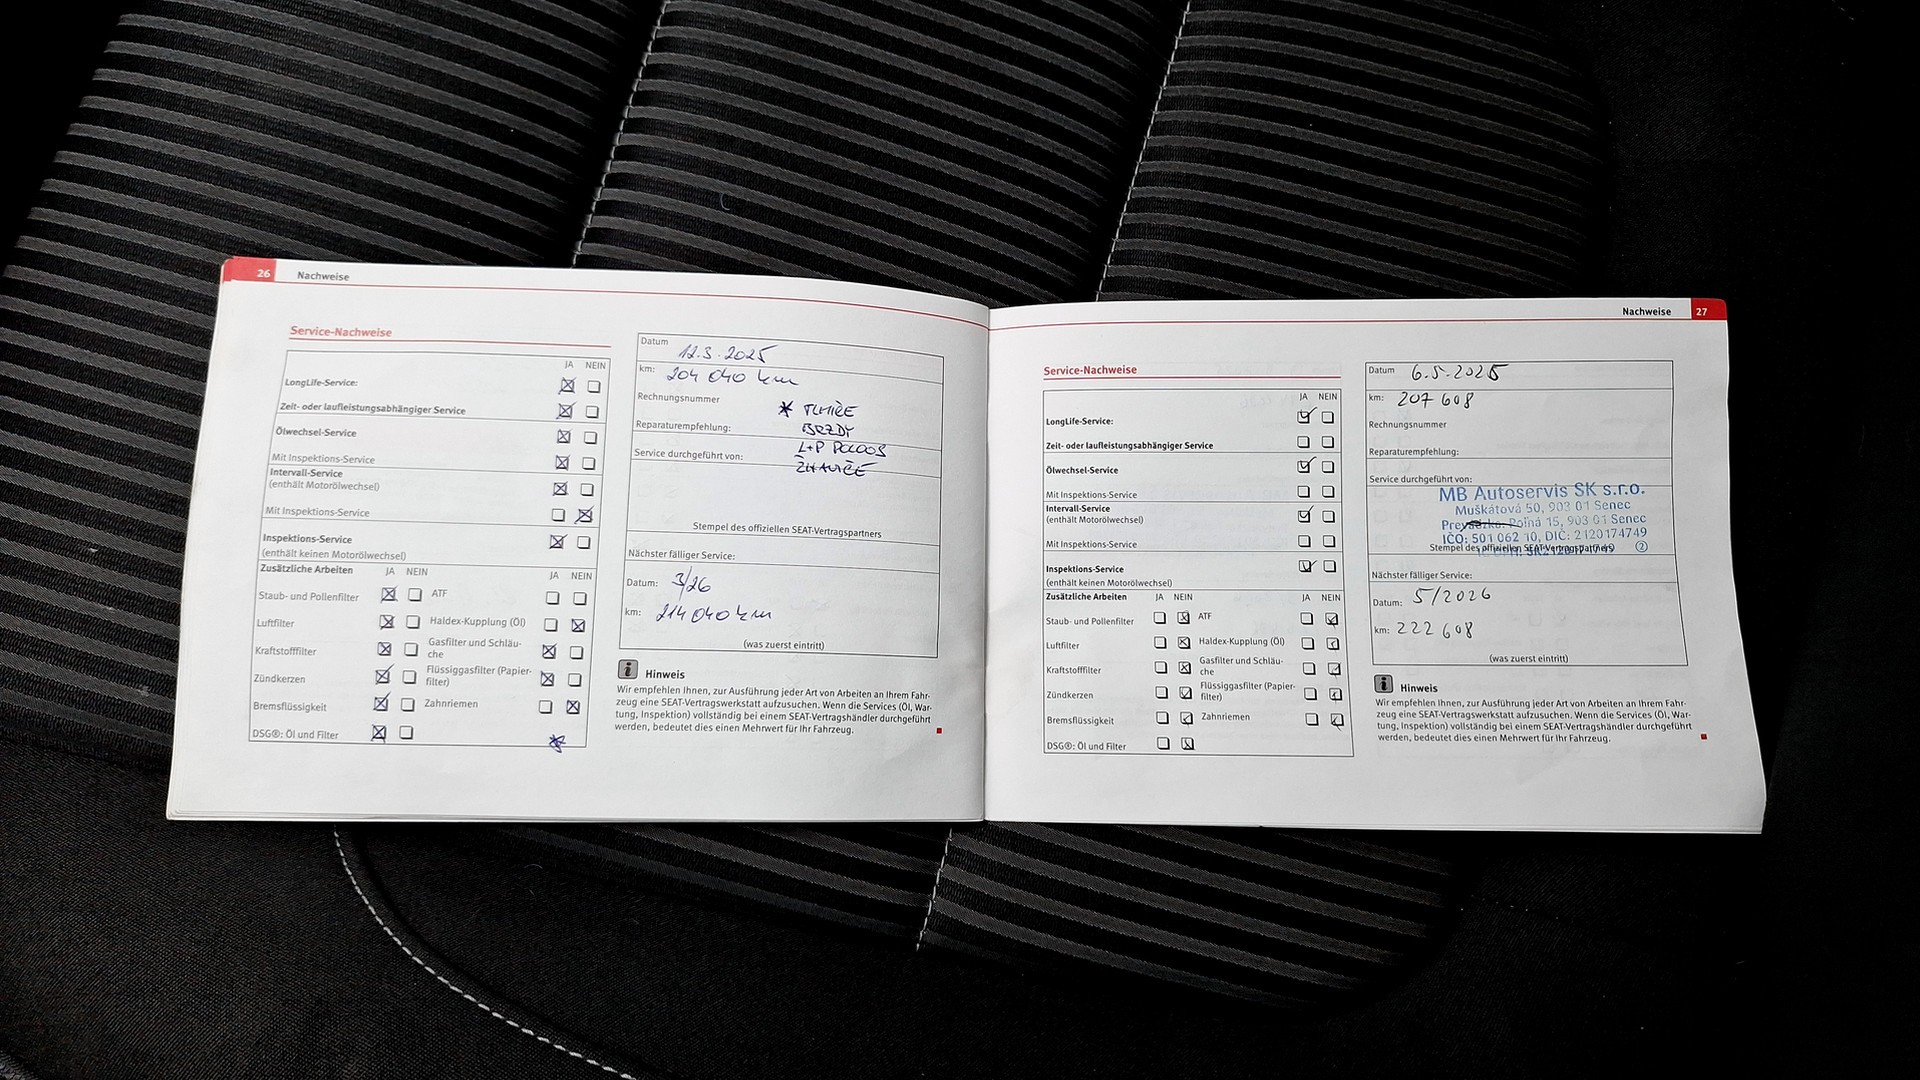 26 Nachweise
Service-Nachweise
JA NEIN
LongLife-Service:
Zeit- oder laufleistungsabhängiger Service
Ölwechsel-Service
Mit Inspektions-Service
Intervall-Service
(enthält Motorölwechsel)
Mit Inspektions-Service
Inspektions-Service
(enthält keinen Motorölwechsel)
Zusätzliche Arbeiten JA NEIN JA NEIN
Staub- und Pollenfilter ATF
Luftfilter Haldex-Kupplung (Öl)
Kraftstofffilter Gasfilter und Schläu-
che
Zündkerzen Flüssiggasfilter (Papier-
filter)
Bremsflüssigkeit Zahnriemen
DSG®: Öl und Filter *
Datum 12.3.2025
km: 204 040 km
Rechnungsnummer
* TLMIČE
Reparaturempfehlung: BRZDY
L+P POLOOS
Service durchgeführt von:
ŽHAVIČE
Stempel des offiziellen SEAT-Vertragspartners
Nächster fälliger Service:
Datum: 3/26
km: 214 040 km
(was zuerst eintritt)
i Hinweis
Wir empfehlen Ihnen, zur Ausführung jeder Art von Arbeiten an Ihrem Fahr-
zeug eine SEAT-Vertragswerkstatt aufzusuchen. Wenn die Services (Öl, War-
tung, Inspektion) vollständig bei einem SEAT-Vertragshändler durchgeführt
werden, bedeutet dies einen Mehrwert für Ihr Fahrzeug.
Nachweise 27
Service-Nachweise
JA NEIN
LongLife-Service:
Zeit- oder laufleistungsabhängiger Service
Ölwechsel-Service
Mit Inspektions-Service
Intervall-Service
(enthält Motorölwechsel)
Mit Inspektions-Service
Inspektions-Service
(enthält keinen Motorölwechsel)
Zusätzliche Arbeiten JA NEIN JA NEIN
Staub- und Pollenfilter ATF
Luftfilter Haldex-Kupplung (Öl)
Kraftstofffilter Gasfilter und Schläu-
che
Zündkerzen Flüssiggasfilter (Papier-
filter)
Bremsflüssigkeit Zahnriemen
DSG®: Öl und Filter
Datum 6.5.2025
km: 207 608
Rechnungsnummer
Reparaturempfehlung:
Service durchgeführt von:
MB Autoservis SK s.r.o.
Muškátová 50, 903 01 Senec
Prevádzka: Poľná 15, 903 01 Senec
IČO: 501 062 10, DIČ: 2120174749
Stempel des offiziellen SEAT-Vertragspartners
2
Nächster fälliger Service:
Datum: 5/2026
km: 222 608
(was zuerst eintritt)
i Hinweis
Wir empfehlen Ihnen, zur Ausführung jeder Art von Arbeiten an Ihrem Fahr-
zeug eine SEAT-Vertragswerkstatt aufzusuchen. Wenn die Services (Öl, War-
tung, Inspektion) vollständig bei einem SEAT-Vertragshändler durchgeführt
werden, bedeutet dies einen Mehrwert für Ihr Fahrzeug.